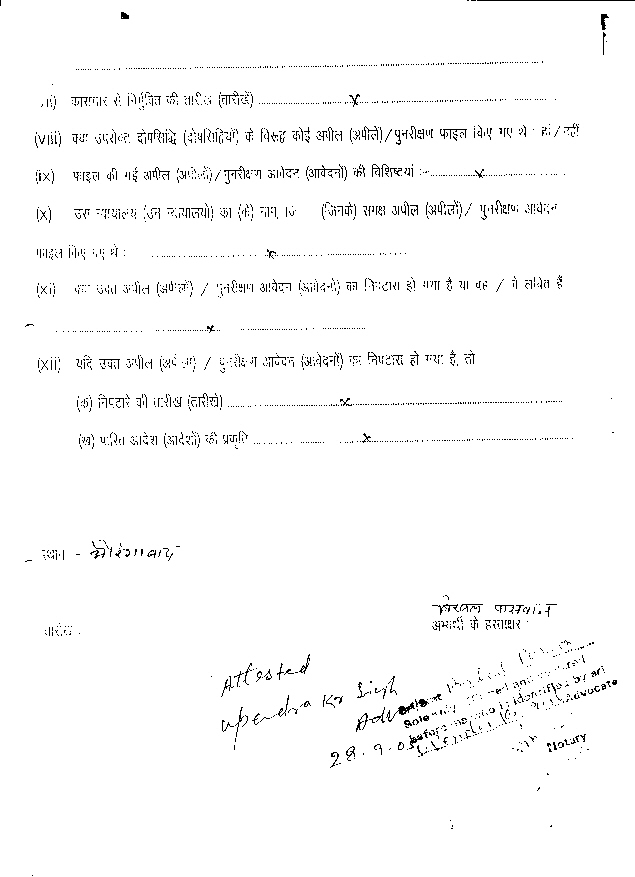 कारागार से निर्मुक्ति की तारीख (तारीखें) ........ x ........
(VIII) क्या उपरोक्त दोषसिद्धि (दोषसिद्धियों) के विरूद्ध कोई अपील (अपीलों)/पुनरीक्षण फाइल किए गए थे : हां/नहीं
(ix) फाइल की गई अपील (अपीलों)/पुनरीक्षण आवेदन (आवेदनों) की विशिष्टयां :- ........ x ........
(x) उस न्यायालय (उन न्यायालयों) का (के) नाम, (जिनके) समक्ष अपील (अपीलों)/ पुनरीक्षण आवेदन
फाइल किए गए थे : ........ x ........
(xi) क्या उक्त अपील (अपीलों) / पुनरीक्षण आवेदन (आवेदनों) का निपटारा हो गया है या वह / वे लंबित हैं
........ x ........
(xii) यदि उक्त अपील (अपीलों) / पुनरीक्षण आवेदन (आवेदनों) का निपटारा हो गया है, तो
(क) निपटारे की तारीख (तारीखें) ........ x ........
(ख) पारित आदेश (आदेशों) की प्रकृति ........ x ........
स्थान - औरंगाबाद
पासवान
तारीख :
अभ्यर्थी के हस्ताक्षर
Attested
Upendra Kr Singh
28.9.05
Solemnly and
before me who is identified by sri
Advocate
Notary